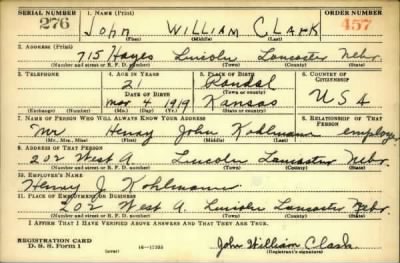 SERIAL NUMBER 1. NAME (Print) ORDER NUMBER
276 JOHN WILLIAM CLARK 457
(First) (Middle) (Last)
2. ADDRESS (Print)
715 Hayes Lincoln Lancaster Nebr.
(Number and street or R. F. D. number) (Town) (County) (State)
3. TELEPHONE 4. AGE IN YEARS 5. PLACE OF BIRTH 6. COUNTRY OF CITIZENSHIP
21 Randal
DATE OF BIRTH (Town or county)
Mar 4 1919 Kansas U S A
(Exchange) (Number) (Mo.) (Day) (Yr.) (State or country)
7. NAME OF PERSON WHO WILL ALWAYS KNOW YOUR ADDRESS 8. RELATIONSHIP OF THAT PERSON
Mr Henry John Kohlmann employer
(Mr., Mrs., Miss) (First) (Middle) (Last)
9. ADDRESS OF THAT PERSON
202 West A. Lincoln Lancaster Nebr.
(Number and street or R. F. D. number) (Town) (County) (State)
10. EMPLOYER'S NAME
Henry J. Kohlmann
11. PLACE OF EMPLOYMENT OR BUSINESS
202 West A. Lincoln Lancaster Nebr
(Number and street or R. F. D. number) (Town) (County) (State)
I AFFIRM THAT I HAVE VERIFIED ABOVE ANSWERS AND THAT THEY ARE TRUE.
REGISTRATION CARD
D. S. S. Form 1 (over) 16-17105 John William Clark
(Registrant's signature)